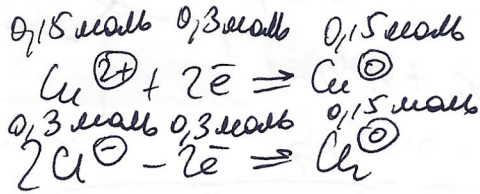 0,15 моль 0,3 моль 0,15 моль
Cu²⁺ + 2ē ⇒ Cu⁰
0,3 моль 0,3 моль 0,15 моль
2Cl⁻ - 2ē ⇒ Cl₂⁰